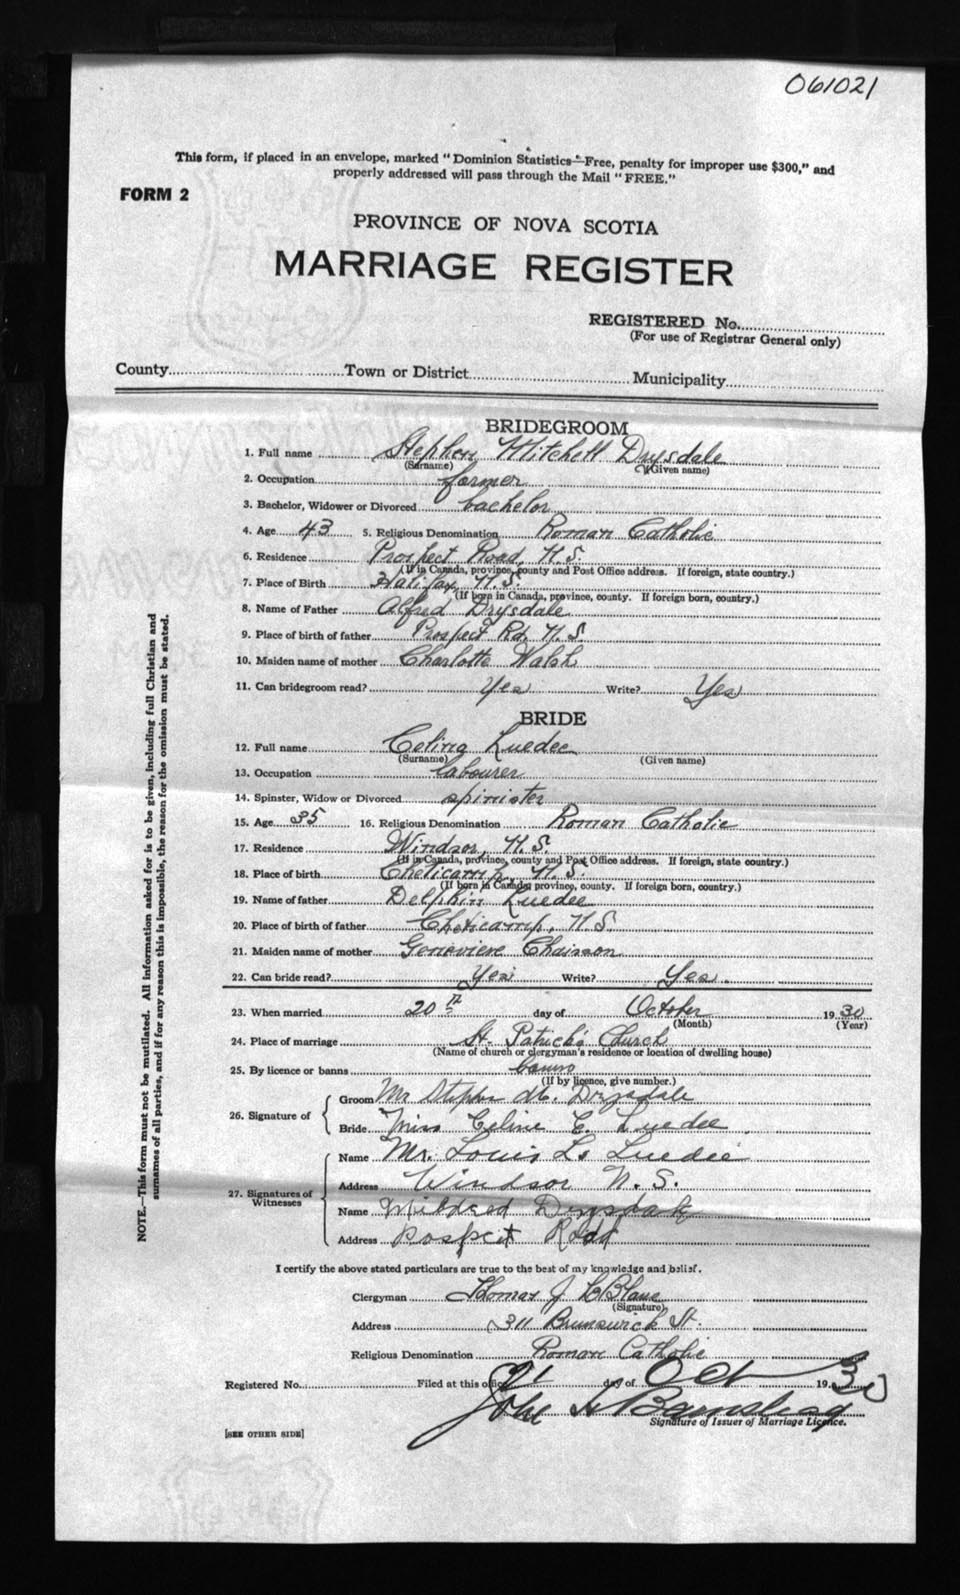 061021
This form, if placed in an envelope, marked "Dominion Statistics—Free, penalty for improper use $300," and
properly addressed will pass through the Mail "FREE."
FORM 2
PROVINCE OF NOVA SCOTIA
MARRIAGE REGISTER
REGISTERED No.
(For use of Registrar General only)
County Town or District Municipality
BRIDEGROOM
1. Full name Stephen Mitchell Drysdale
(Surname) (Given name)
2. Occupation farmer
3. Bachelor, Widower or Divorced bachelor
4. Age 43 5. Religious Denomination Roman Catholic
6. Residence Prospect Road, N.S.
(If in Canada, province, county and Post Office address. If foreign, state country.)
7. Place of Birth Halifax, N.S.
(If born in Canada, province, county. If foreign born, country.)
8. Name of Father Alfred Drysdale
9. Place of birth of father Prospect Rd. N.S.
10. Maiden name of mother Charlotte Walsh
11. Can bridegroom read? Yes Write? Yes
BRIDE
12. Full name Celina Luedee
(Surname) (Given name)
13. Occupation labourer
14. Spinster, Widow or Divorced spinister
15. Age 35 16. Religious Denomination Roman Catholic
17. Residence Windsor, N.S.
(If in Canada, province, county and Post Office address. If foreign, state country.)
18. Place of birth Cheticamp, N.S.
(If born in Canada, province, county. If foreign born, country.)
19. Name of father Delphin Luedee
20. Place of birth of father Cheticamp, N.S.
21. Maiden name of mother Genevieve Chaisson
22. Can bride read? Yes Write? Yes
23. When married 20th day of October 1930
(Month) (Year)
24. Place of marriage St. Patrick's Church
(Name of church or clergyman's residence or location of dwelling house)
25. By licence or banns banns
(If by licence, give number.)
26. Signature of
Groom Mr Stephen M. Drysdale
Bride Miss Celine E. Luedee
27. Signatures of Witnesses
Name Mr. Louis L. Luedee
Address Windsor N.S.
Name Mildred Drysdale
Address Rospect Road
I certify the above stated particulars are true to the best of my knowledge and belief.
Clergyman Thomas J LeBlanc
(Signature)
Address 311 Brunswick St.
Religious Denomination Roman Catholic
Registered No. Filed at this office 21 day of Oct 1930
John
Signature of Issuer of Marriage Licence.
[SEE OTHER SIDE]
NOTE.—This form must not be mutilated. All information asked for is to be given, including full Christian and
surnames of all parties, and if for any reason this is impossible, the reason for the omission must be stated.